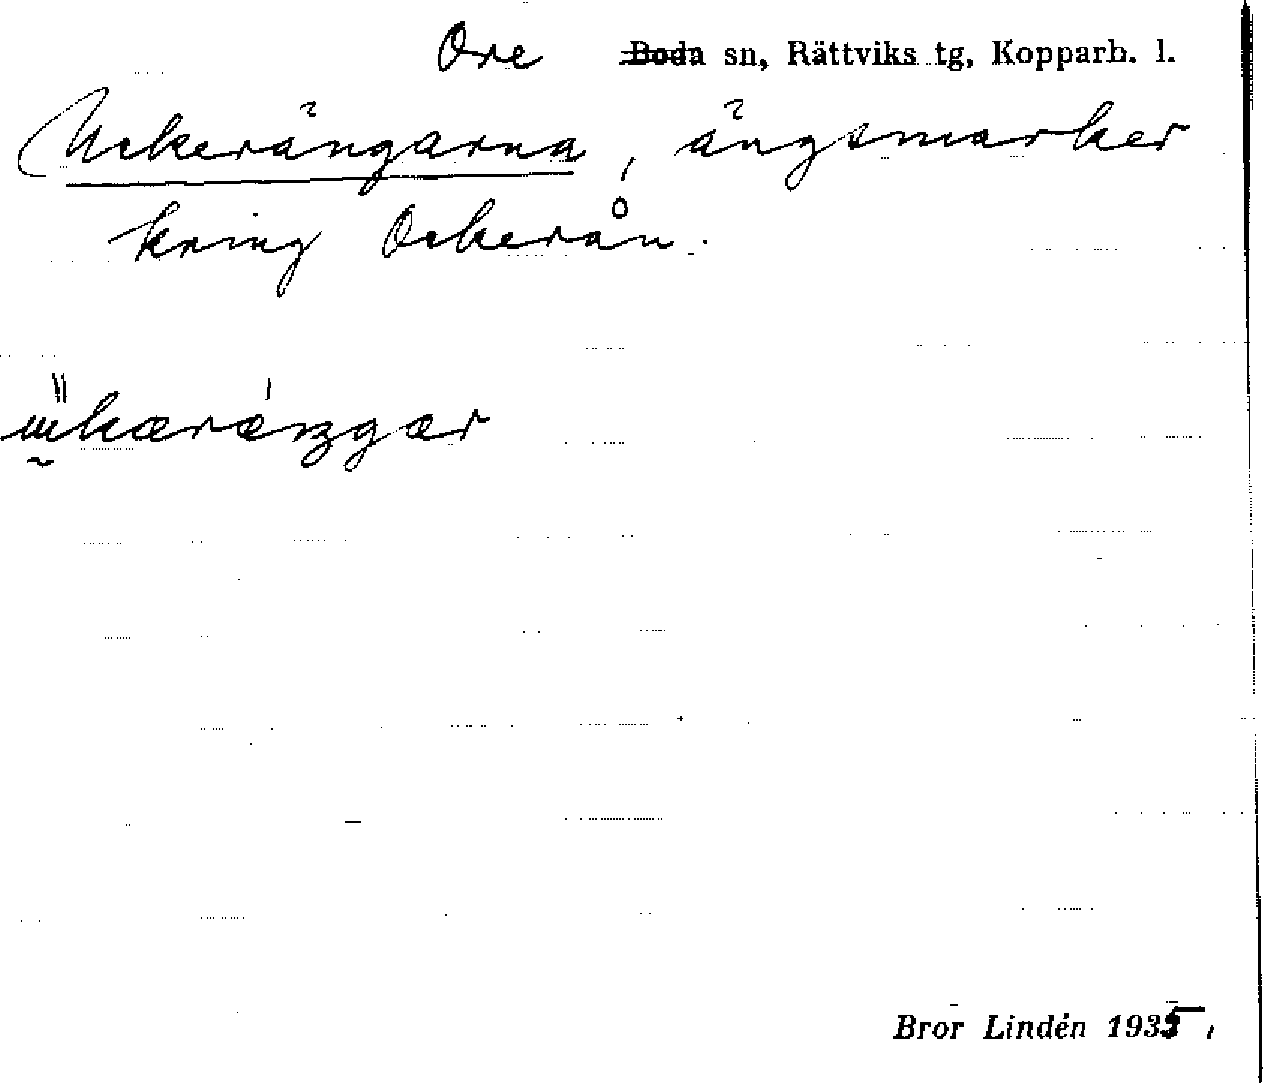 Ore Boda sn, Rättviks tg, Kopparb. l.
Uckerängarna, ängsmarker
kring Ockerån.
Bror Lindén 1935.